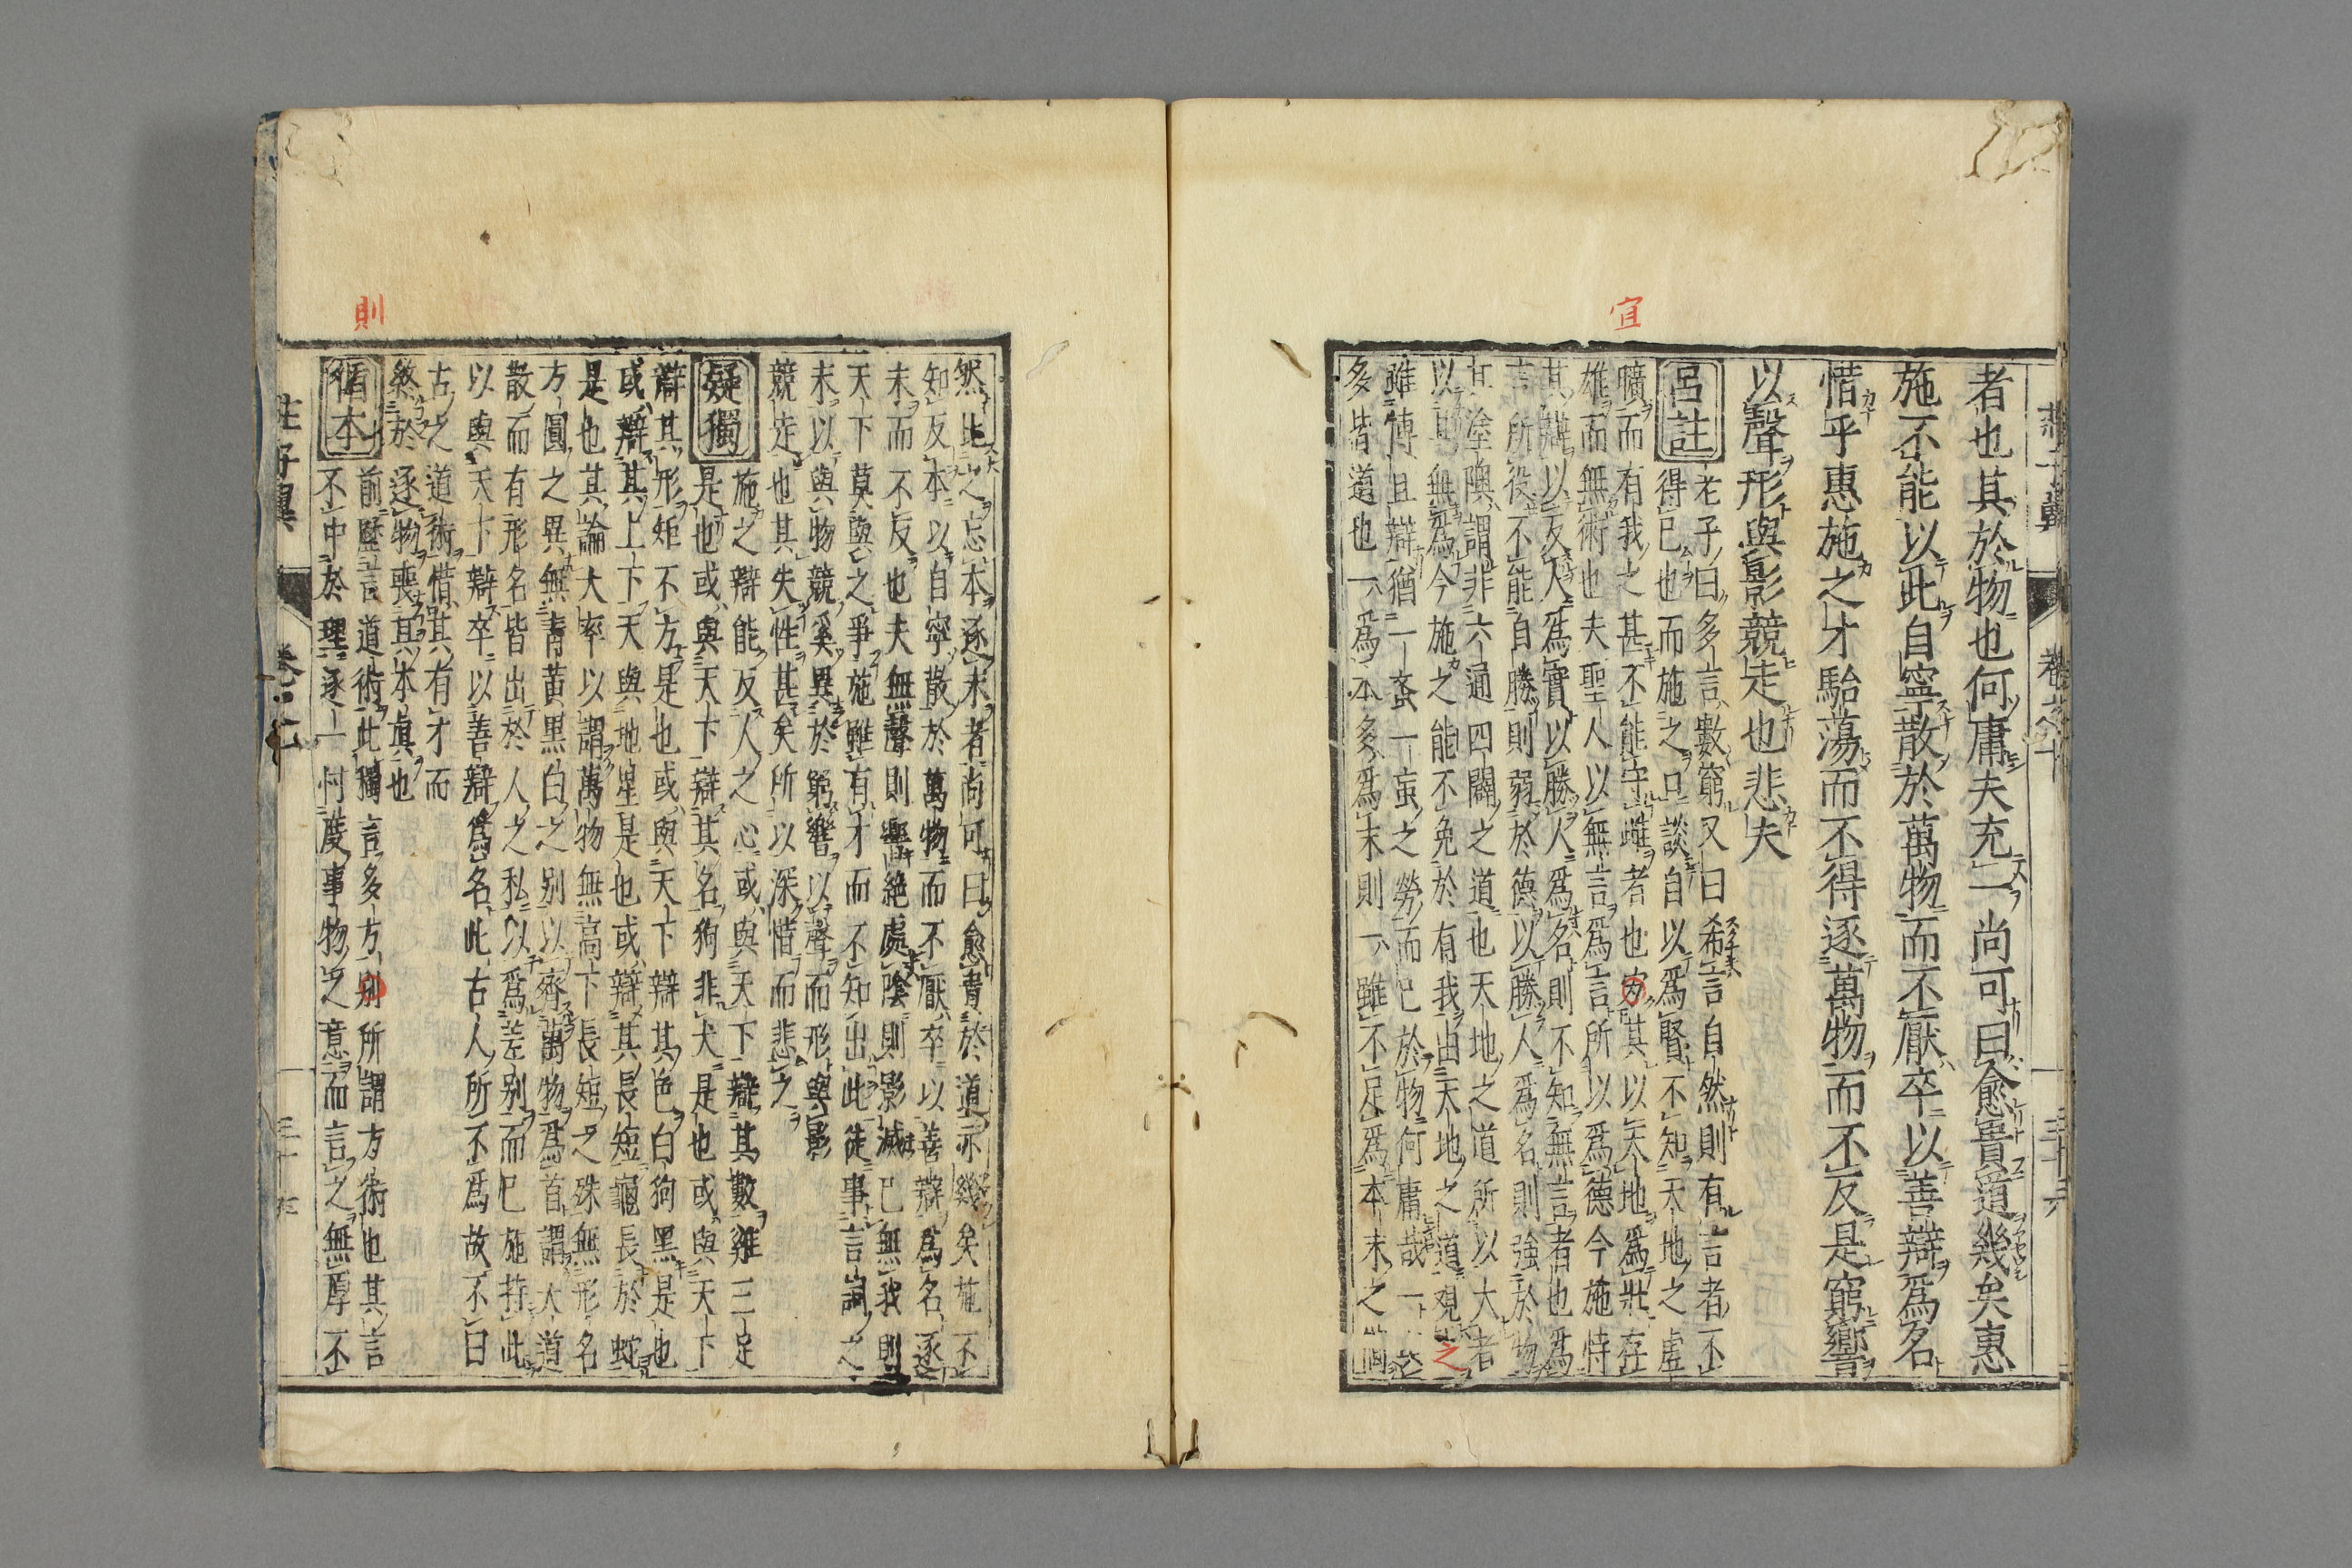 宜
者也其於物也何庸夫充一尚可曰愈貴道幾矣惠
施不能以此自寧散於萬物而不厭卒以善辯爲名
惜乎惠施之才駘蕩而不得逐萬物而不反是窮響
以聲形與影競走也悲夫
呂註
老子曰多言數窮又曰希言自然則有言者不
得已也而施之口談自以爲賢不知天地之虛
曠而有我之甚不能守雌者也其以天地爲壯存
雄而無術也夫聖人以無言爲言所以爲德今施恃
其辯以反人爲實以勝人爲名則不知無言者也爲
言所役不能自勝則弱於德以勝人爲名則強於物
其塗隩謂非六通四闢之道也天地之道所以大者
以其無爲今施之能不免於有我由天地之道觀之
雖博且辯猶一蚉一䖟之勞而已於物何庸哉
多皆道也一爲本多爲末則一雖不足爲本末之
則
然比之忘本逐末者尚可曰愈貴於道亦幾矣施不
知反本以自寧散於萬物而不厭卒以善辯爲名逐
末而不反也夫無聲則響絶處陰則影滅已無我則
天下莫與之爭施雖有才而不知出此徒事言詞之
末以與物競奚異於窮響以聲而形與影
競走也其失性甚矣所以深惜而悲之
疑獨
施之辯能反人之心或與天下辯其數雞三足
是也或與天下辯其名狗非犬是也或與天下
辯其形矩不方是也或與天下辯其色白狗黑是也
或辯其上下天與地星是也或辯其長短龜長於蛇
是也其論大率以謂萬物無高下長短之殊無形名
方圓之異無青黃黒白之別以齊萬物爲首謂大道
散而有形名皆出於人之私以爲差別而已施持此
以與天下辯卒以善辯爲名此古人所不爲故不曰
古之道術惜其有才而
㷀於逐物喪其本真也
循本
前歷言道術此獨言多方別所謂方術也其言
不中於理逐一忖度事物之意而言之無厚不